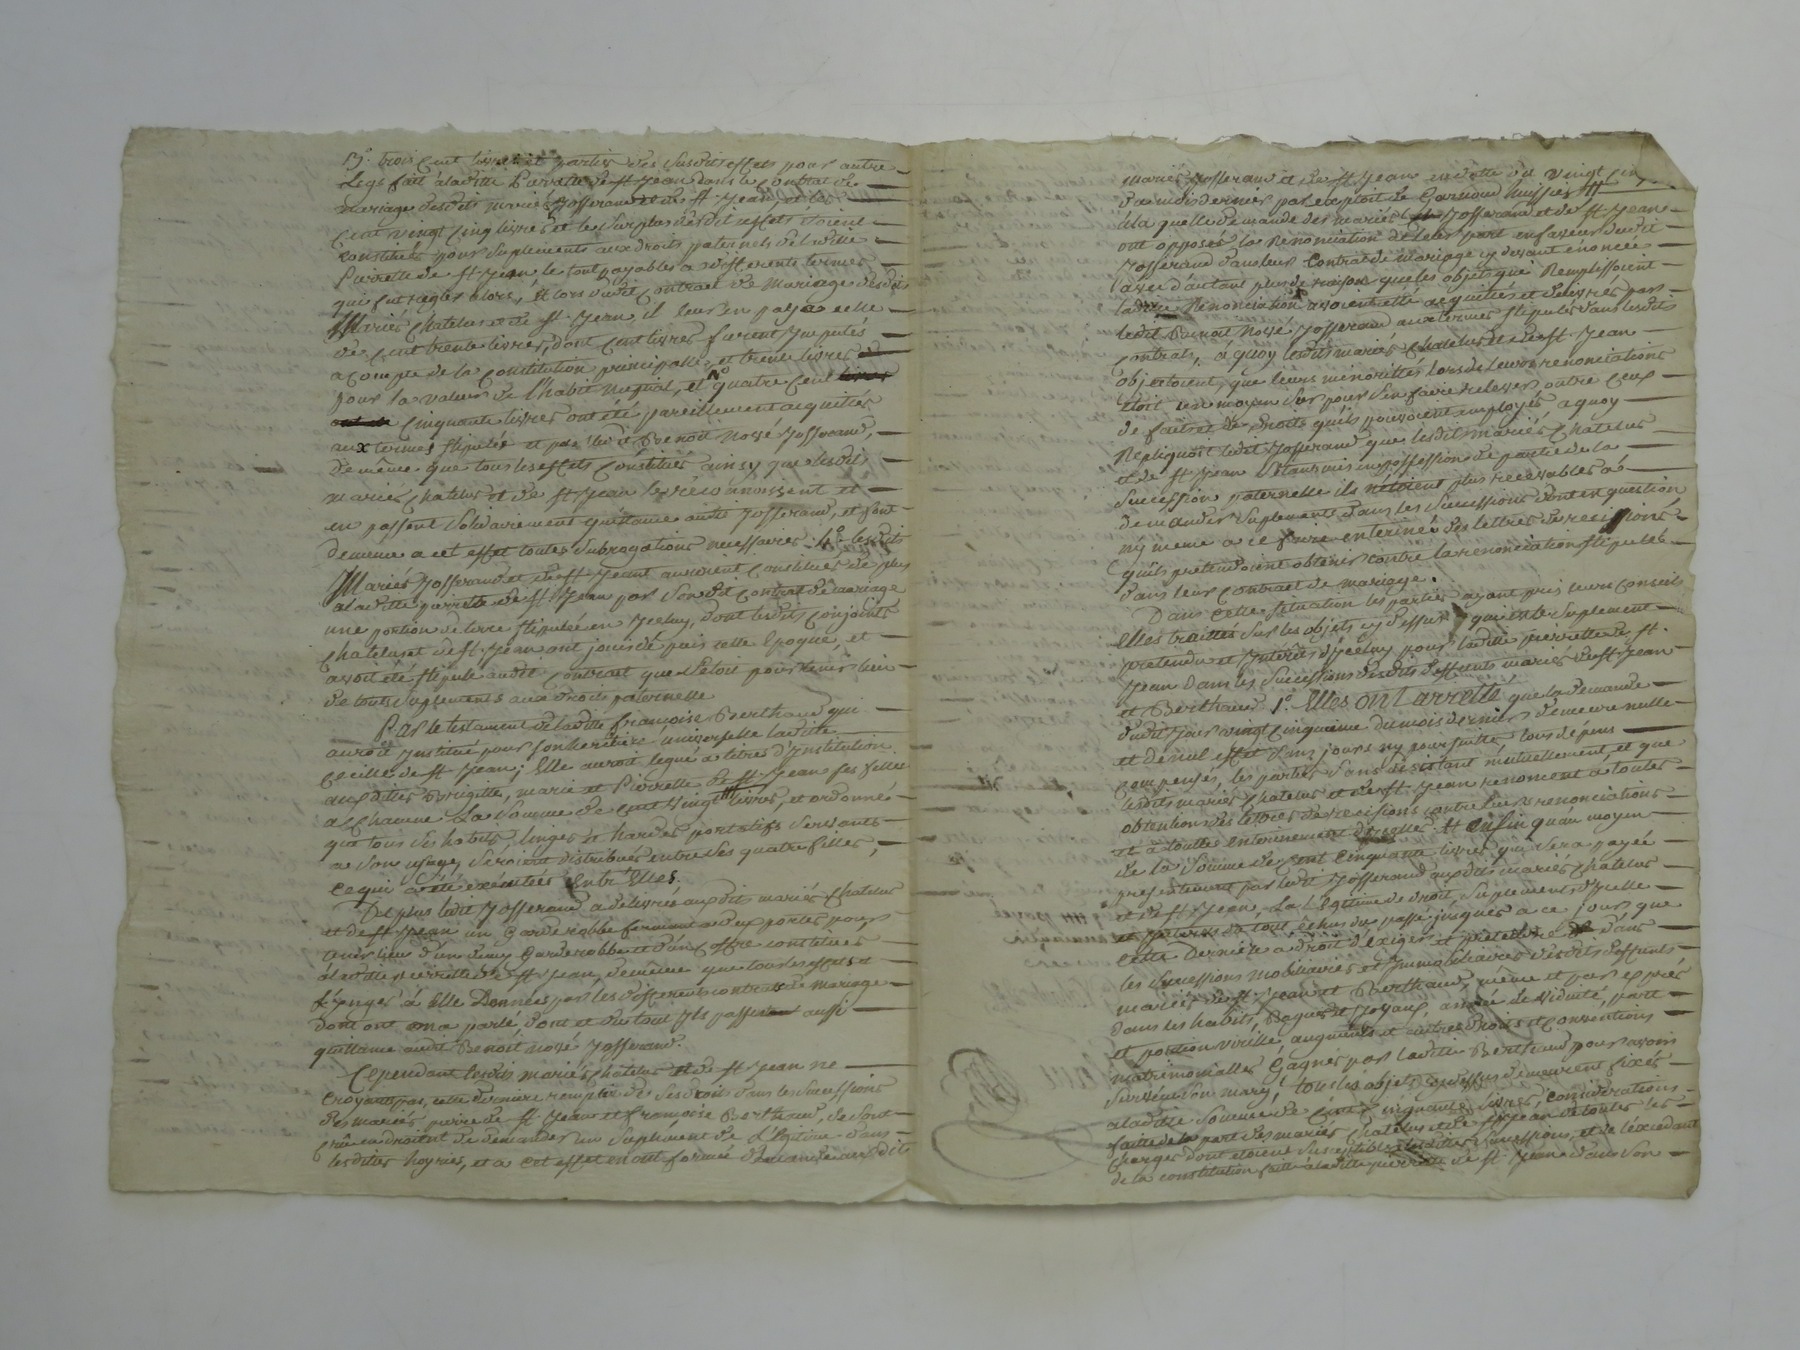 3°. trois cent livres et partie des susdits effets pour autre
Legs fait à laditte Pierrette de St. Jean dans le contrat de
mariage desdits mariés Jofferand et de St. Jean, et les
cent vingt cinq livres et le surplus desdit effets soient
constitués pour suplements aux droits paternels de laditte
Pierrette de St. Jean le tout payables a differents termes
qui fut reglés alors, Et lors dudit contract de Mariage desdits
Mariés Chatelus et de St. Jean il leur en paya celle
de cent trente livres, dont cent livres furent Imputés
a compte de la constitution principalle, et trente livres
pour la valeur de l'habit nuptial, et quatre cent
cinquante livres ont été pareillement acquittés
aux termes stipulés et par ledit Benoit Nové Jofferand,
de même que tous les effets constitués ainsy que lesdits
mariés Chatelus et de St. Jean le reconnoissent et
en passent solidairement quittance audit Jofferand, et font
dememe a cet effet toutes subrogations necessaires. 4°. lesdits
Mariés Jofferand et de St. Jean auroient constitués de plus
a laditte pierrette de St. Jean par son dit contrat de mariage
une portion de terre stipulée en Iceluy, dont lesdits conjoints
Chatelus et de St. Jean ont joui depuis cette Epoque, et
avoit été stipulé audit contrat que s'étoit pour tenir lieu
de touts suplements aux droits paternelle
Par le testament de laditte françoise Berthaud qui
auroit Institué pour son heritiere universelle laditte
Cecille de St. Jean; Elle auroit legué a titre d'Institution
auxdittes Brigitte, marie et Pierrette de St. Jean ses filles
a chacune La somme de cent vingt livres, et ordonné
que tous ses habits, linges et hardes portatifs servants
a son usage, seroient distribués entre ses quatre filles,
ce qui a été executée Entr'Elles.
De plus ledit Jofferand a delivré auxdits mariés Chatelus
et de St. Jean un Garderobbe fermant a deux portes pour
tenir lieu d'un vieux Garderobbe et d'un Coffre constitués
a laditte pierrette de St. Jean, demême que tous les effets et
linges à Elle Donnés par les differents contrats de mariage
dont ont en a parlé, dont et du tout Ils passent aussi
quittance audit Benoit nové Jofferand.
Cependant lesdits mariés Chatelus et de St. Jean ne
croyants pas, cette derniere remplie de ses droits dans les successions
des mariés, pierre de St. Jean et françoise Berthaud, se sont
crû en droit de demander un suplément de Légitime dans
lesdittes hoyries, et a cet effet en ont formé demande auxdits
mariés Jofferand et de St. Jean en datte du vingt cinq
du mois dernier par exploit de Garendon huissier
à la quelle demande des mariés Jofferand et de St. Jean
ont opposés la Renonciation de leur part en faveur dudit
Jofferand dans leur Contrat de mariage cy devant énoncée
avec d'autant plus de raison que les objets que Remplissoient
ladite Renonciation avoient eté acquittés et delivrés par
ledit Benoit Nové Jofferand aux termes stipulés dans lesdits
contrats, à quoy lesdits mariés Chatelus et de St. Jean
objectoient, que leurs minorittés lors de leurs renonciations
étoit un moyen sur pour s'en faire relever, outre ceux
de fait et de droits qu'ils pouvoient employés, a quoy
Repliquoit ledit Jofferand que lesdits mariés Chatelus
et de St. Jean s'étant mis en possession de partie de la
succession paternelle ils n'étoient plus recevables à
demander suplements dans les successions dont est question
ny meme a ce faire enterinée des lettres de rescissions
qu'ils pretendoient obtenir contre la renonciation stipulée
dans leur contract de mariage.
Dans cette situation les parties ayant pris leurs conseils
Elles traittés sur les objets cy dessus qui est le suplement
pretendu et Interêts d'Iceluy pour laditte pierrette de St.
Jean dans les successions desdits deffunts mariés de St. Jean
et Berthaud. 1°. Elles ont arretté que la demande
dudit jour vingt cinquieme du mois dernier demeure nulle
et de nul effet sans jours ny poursuitte tous depens
compensés, les parties s'en desistant mutuellement, et que
lesdits mariés Chatelus et de St. Jean renoncent à toutes
obtention des lettres de rescisions contre leurs renonciations
et à touttes enterinement d'icelles Et enfin quau moyen
de la somme de Cent Cinquante livres qui sera payée
presentement par ledit Jofferand auxdits mariés Chatelus
et de St. Jean, La Légitime de droit, suplement d'Icelle
et Interets du tout, échus du passé jusques a ce jour que
cette derniere a droit d'exiger et pretendre dans
les successions mobiliaires et Immobiliaires desdits deffunts
mariés de St. Jean et Berthaud, même et par exprés
dans les habits, Bagues et Joyaux, année de viduité, part
et portion virille, augments et autres droits et conventions
matrimonialles Gagnés par laditte Berthaud pour avoir
survécu son mary, tous les objets cy dessus demeurent fixés
a laditte somme de Cent Cinquante livres, considerations
faitte de la part des mariés Chatelus et de St. Jean de toutes les
charges dont étoient susceptibles lesdites successions, et de l'excedant
de la constitution faitte à laditte pierrette de St. Jean dans son